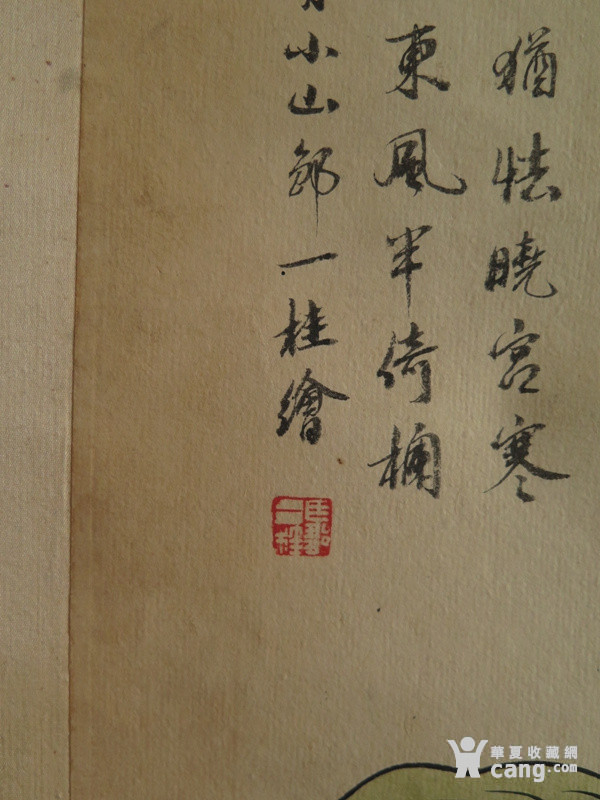 猶怯曉宮寒
東風半倚欄
小山鄒一桂繪
華夏收藏網
cang.com